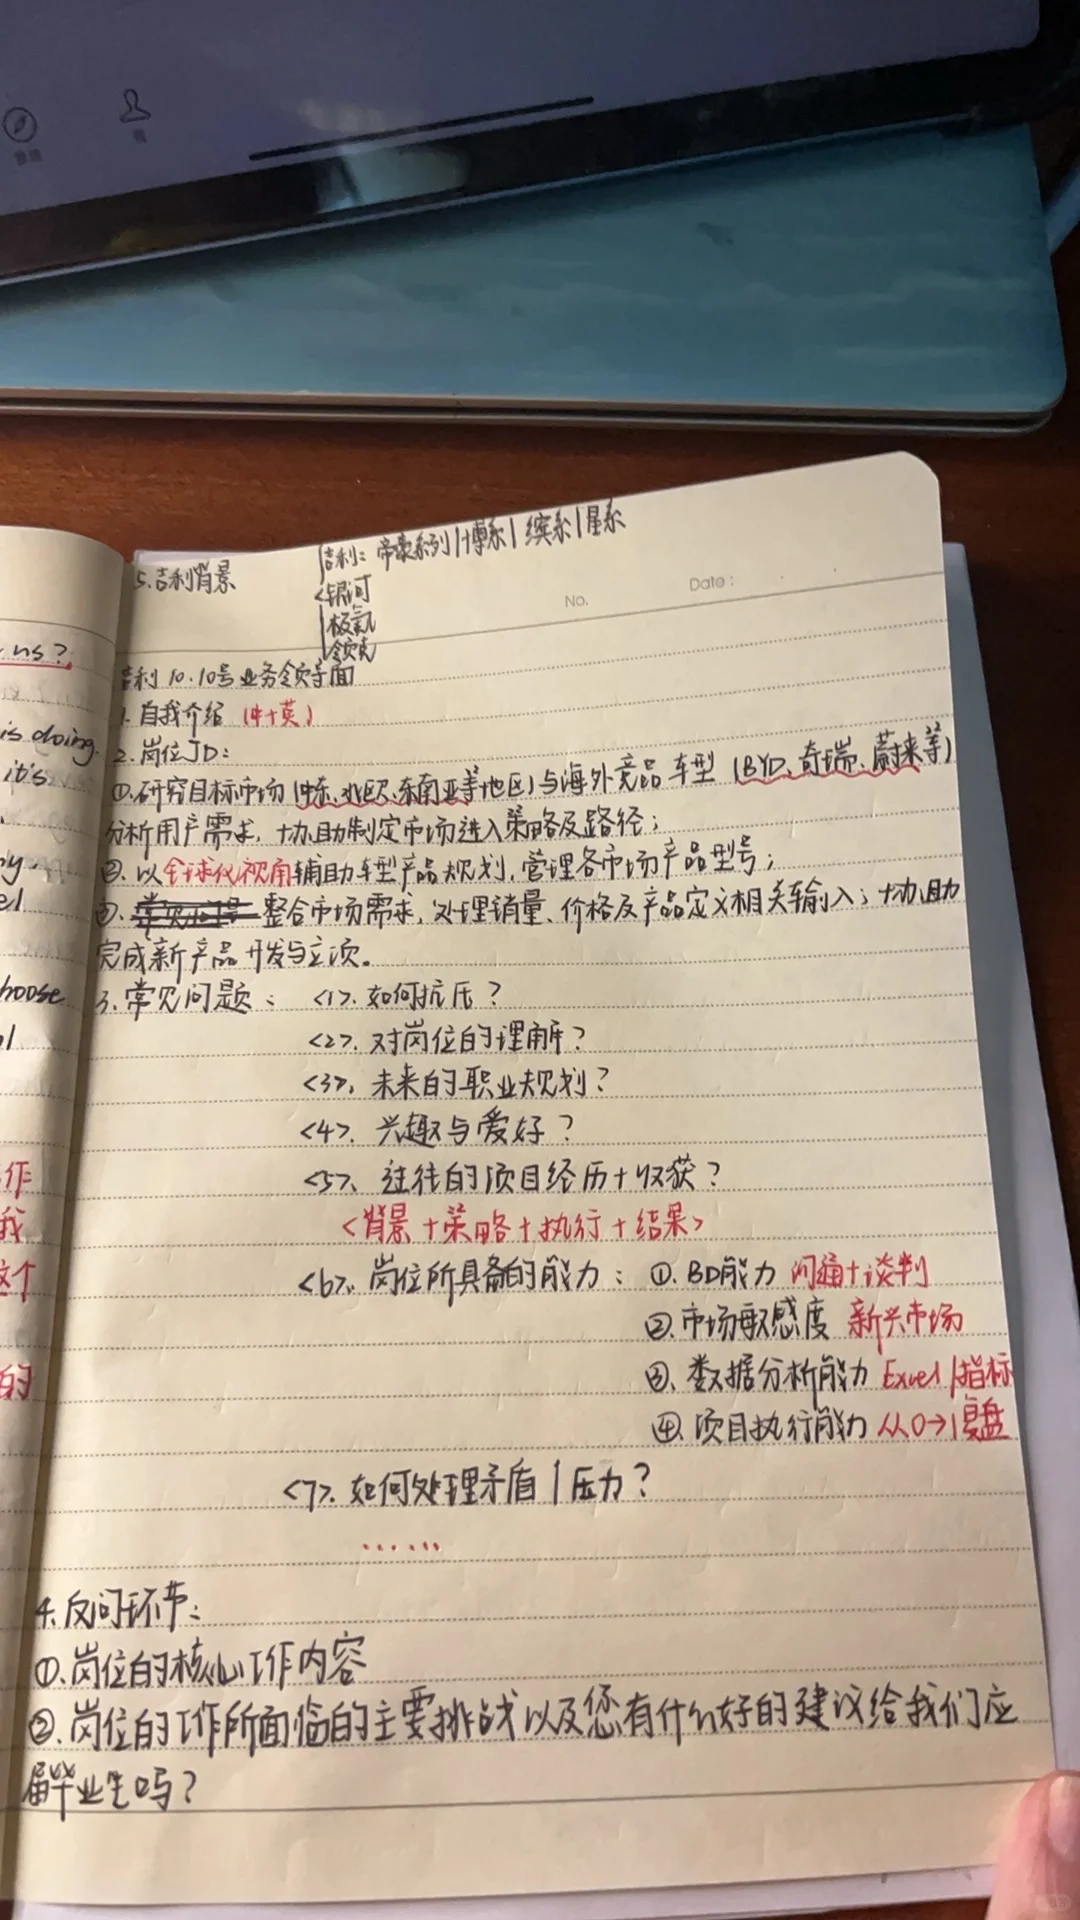 5.吉利背景
吉利:帝豪系列|博系|缤系|星系
银河
极氪
领克
No.
Date:
吉利10.10号业务领导面
1.自我介绍(中+英)
2.岗位JD:
①.研究目标市场(中东、北欧、东南亚等地区)与海外竞品车型(BYD、奇瑞、蔚来等)
分析用户需求,协助制定市场进入策略及路径;
②.以全球化视角辅助车型产品规划,管理各市场产品型号;
③.整合市场需求,处理销量、价格及产品定义相关输入;协助
完成新产品开发与立项。
3.常见问题: <1>.如何抗压?
<2>.对岗位的理解?
<3>.未来的职业规划?
<4>.兴趣与爱好?
<5>.过往的项目经历+收获?
<背景+策略+执行+结果>
<6>.岗位所具备的能力:①.BD能力 沟通+谈判
②.市场敏感度 新兴市场
③.数据分析能力 Excel/指标
④.项目执行能力 从0→1复盘
<7>.如何处理矛盾|压力?
......
4.反问环节:
①.岗位的核心工作内容
②.岗位的工作所面临的主要挑战以及您有什么好的建议给我们应
届毕业生吗?
us?
is doing.
it's
hoose
作
我
这个
的